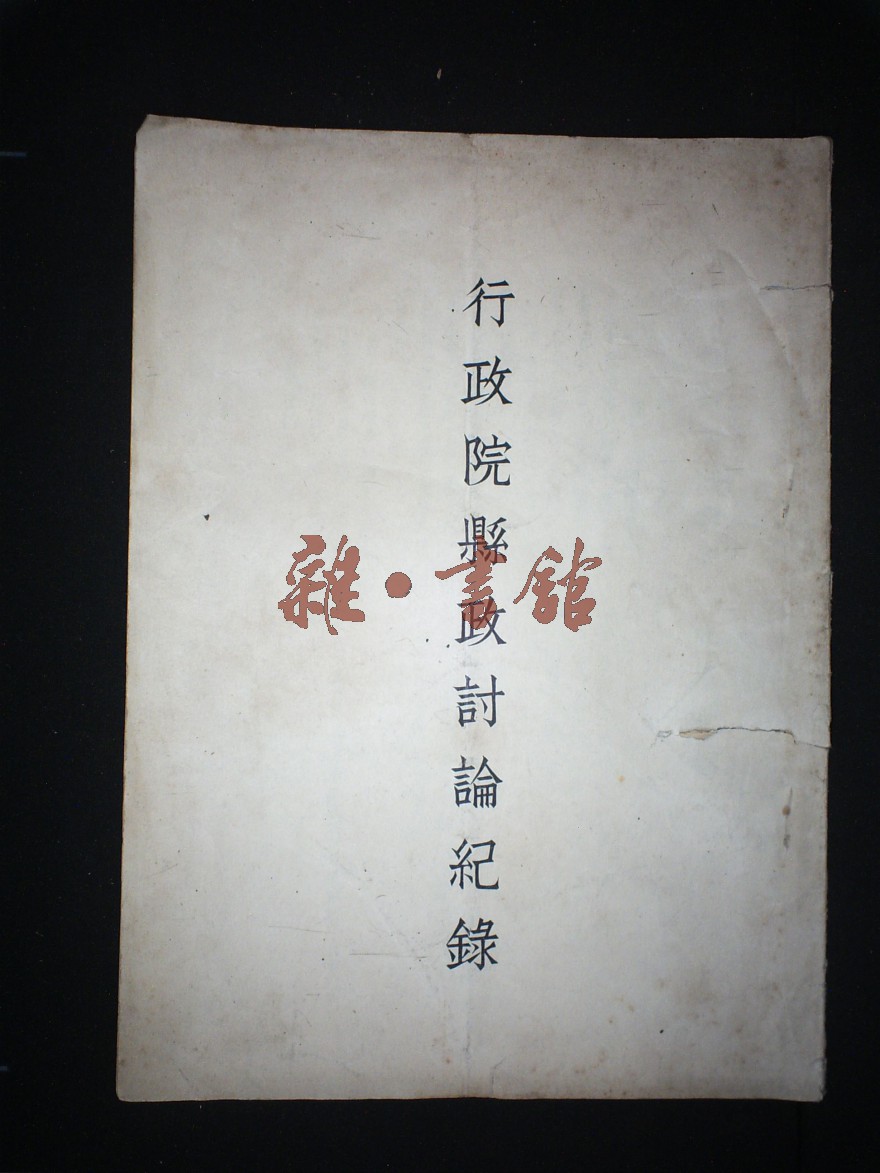 行政院縣政討論紀錄
雜·書館